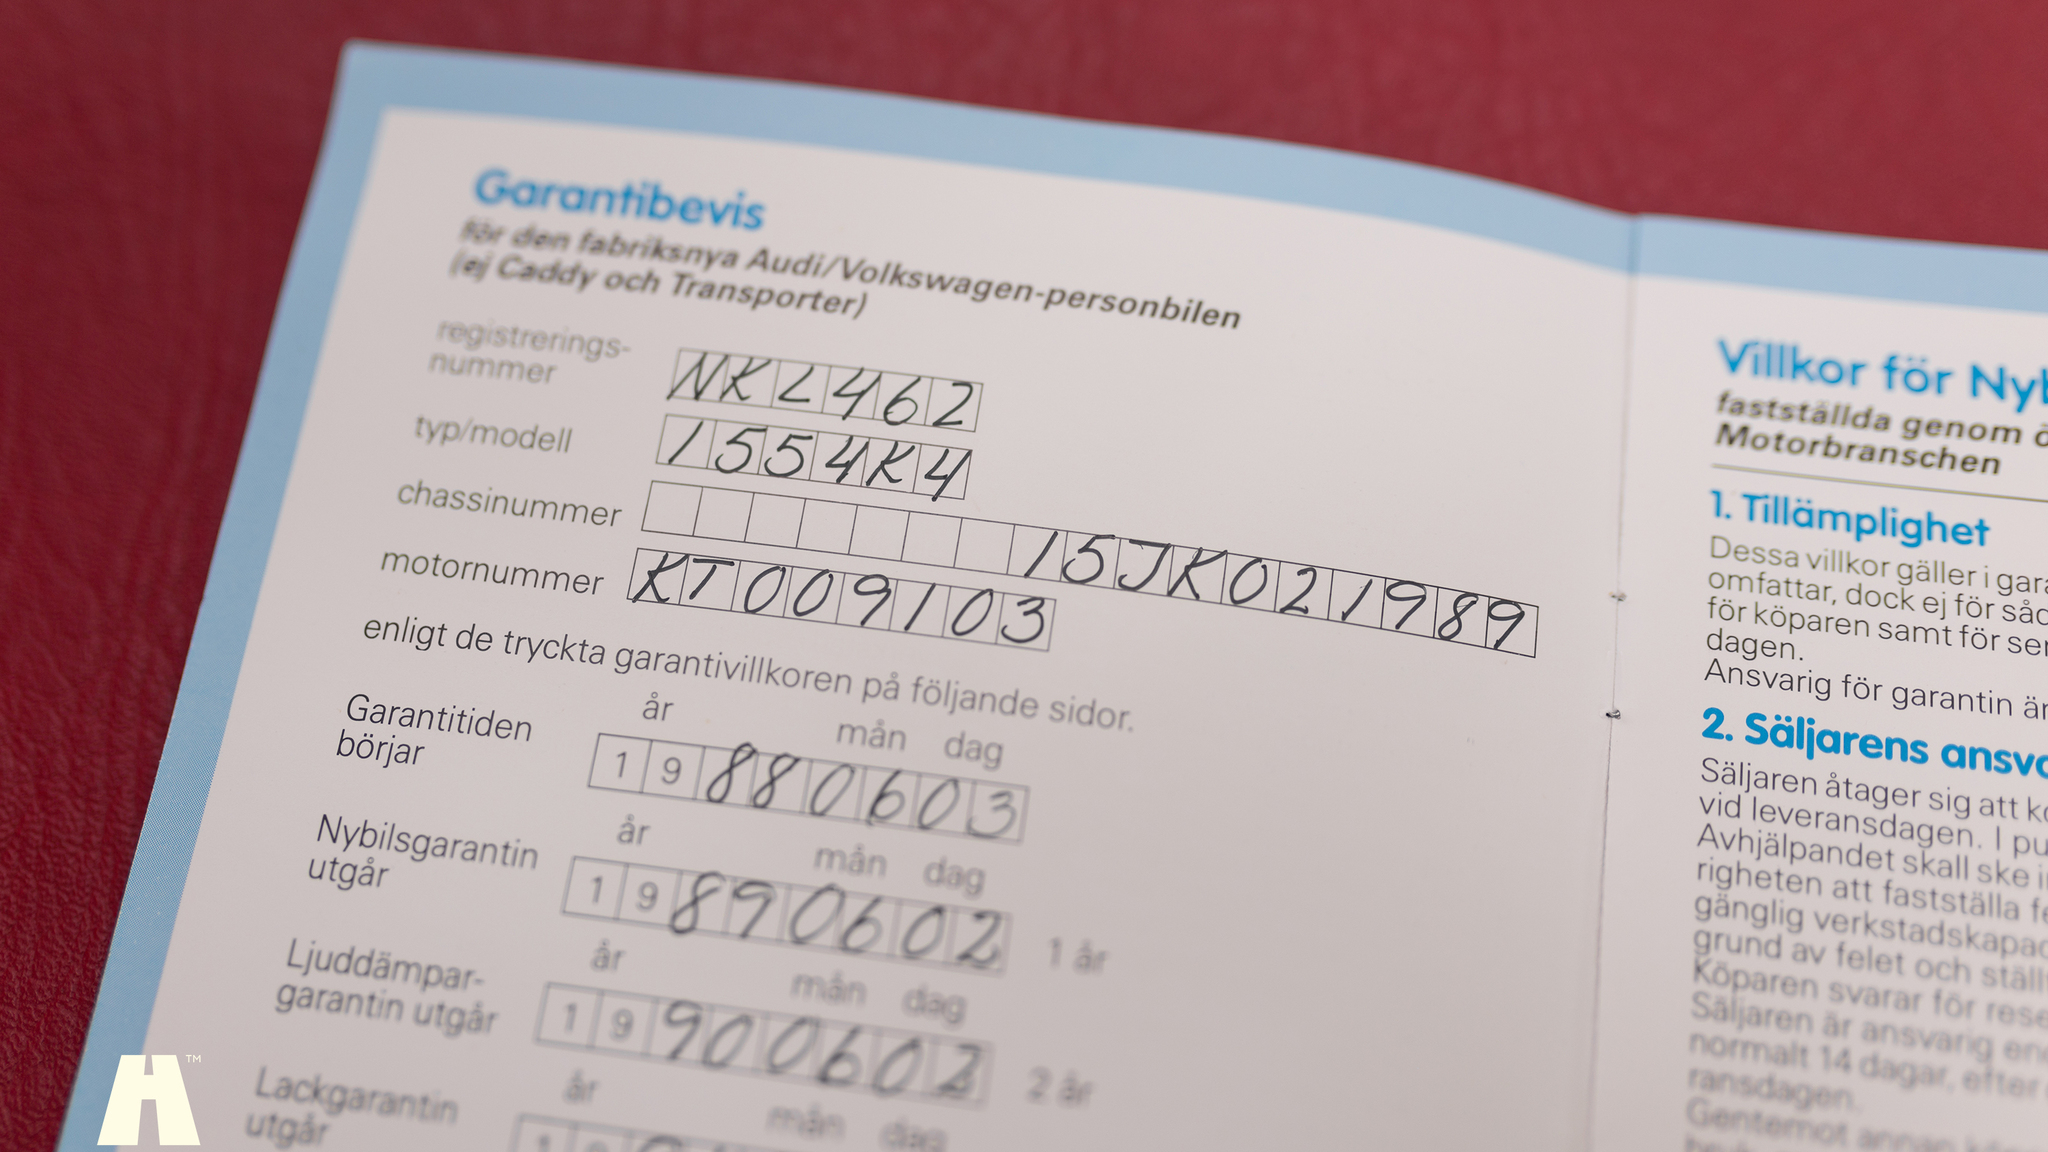 Garantibevis
för den fabriksnya Audi/Volkswagen-personbilen
(ej Caddy och Transporter)
registrerings-
nummer NKL462
typ/modell 1554K4
chassinummer 15JK021989
motornummer KT009103
enligt de tryckta garantivillkoren på följande sidor.
år mån dag
Garantitiden
börjar 19880603
år mån dag
Nybilsgarantin
utgår 19890602 1 år
år mån dag
Ljuddämpar-
garantin utgår 19900602 2 år
år mån dag
Lackgarantin
utgår 19
Villkor för Nyb
fastställda genom ö
Motorbranschen
1. Tillämplighet
Dessa villkor gäller i gara
omfattar, dock ej för såd
för köparen samt för ser
dagen.
Ansvarig för garantin är
2. Säljarens ansva
Säljaren åtager sig att ko
vid leveransdagen. I pu
Avhjälpandet skall ske i
righeten att fastställa fe
gänglig verkstadskapac
grund av felet och ställt
Köparen svarar för rese
Säljaren är ansvarig en
normalt 14 dagar, efter
ransdagen.
Gentemot annan
TM